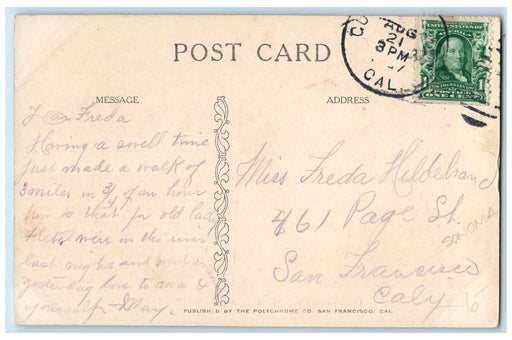 POST CARD
AUG
21
3 PM
07
CAL.
UNITED STATES OF
AMERICA
POSTAGE
ONE CENT
MESSAGE
ADDRESS
Dear Freda
Having a swell time
just made a walk of
3 miles in 3/4 of an hour
how is that for old lady
were in the river
last night and
yesterday love to ma &
yourself - May.
Miss Freda Hildebrand
461 Page St.
San Francisco
Caly
SONOMA
PUBLISHED BY THE POLYCHROME CO. SAN FRANCISCO, CAL.